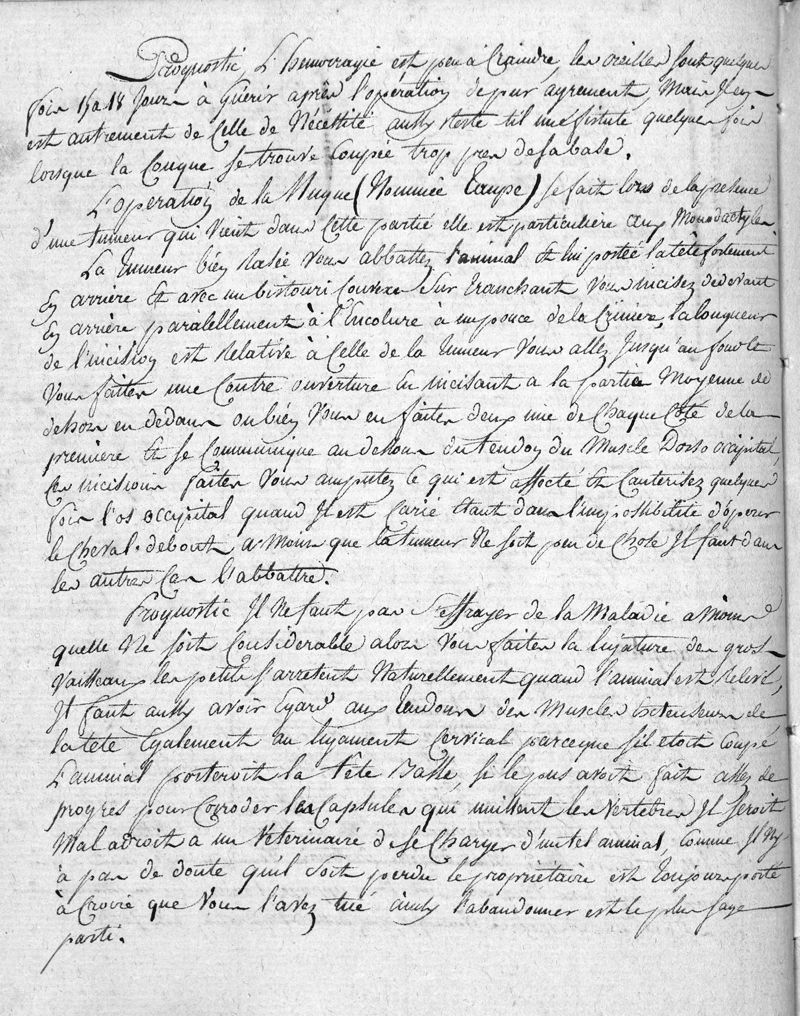 Prognostic, L'hemorragie est peu à Craindre, les oreilles sont quelques
fois 15 a 18 Jours à Guérir après l'opération de pur agrement, Mais Il en
est autrement de Celle de Nécéssité aussy Reste t'il une fistule quelques fois
lorsque la Conque se trouve Coupée trop pres de sa base.
L'opération de la Nuque (Nommée Taupe) se fait lors de la presence
d'une tumeur qui vient dans Cette partie elle est particulière aux Monodactyles
La Tumeur bien Rasée vous abbattez l'animal Et lui portée la tête fortement
En arrière Et avec un bistouri Convexe Sur tranchant vous incisez de devant
En arrière paralellement à l'Encolure à un pouce de la Criniere, la longueur
de l'incision est Relative à Celle de la Tumeur Vous allez Jusqu'au fond Et
Vous faites une Contre ouverture En incisant a la partie Moyenne de
dehors en dedans ou bien Vous en faites deux une de Chaque Côté de la
première Et se Communique au dehors du tendon du Muscle Dorso occipital,
Ces incisions faites Vous amputez ce qui est affecté Et Cauterisez quelques
fois l'os occipital quand Il est Carié Etant dans l'impossibilité d'opérer
le Cheval debout à Moins que la tumeur Ne soit peu de Chose Il faut dans
les autres Cas l'abbattre.
Prognostic Il Ne faut pas S'effrayer de la Maladie a Moins
quelle Ne soit Considerable alors Vous faites la ligature des gros
Vaisseaux les petits s'arretent Naturellement quand l'animal est Relevé,
Il faut aussy avoir Egard aux Tendons des Muscles Extenseurs de
la tete Egalement au ligament Cervical parceque s'il etoit Coupé
L'animal porteroit la tête Basse, si le pus avoit fait assez de
progres pour Coroder les Capsules qui unissent les Vertebres Il seroit
Mal adroit a un Véterinaire de se Charger d'un tel animal, comme Il Ny
à pas de doute qu'il soit perdu le propriétaire est Toujours porté
à Croire que Vous l'avez tué aussy l'abandonner est le plus sage
parti.